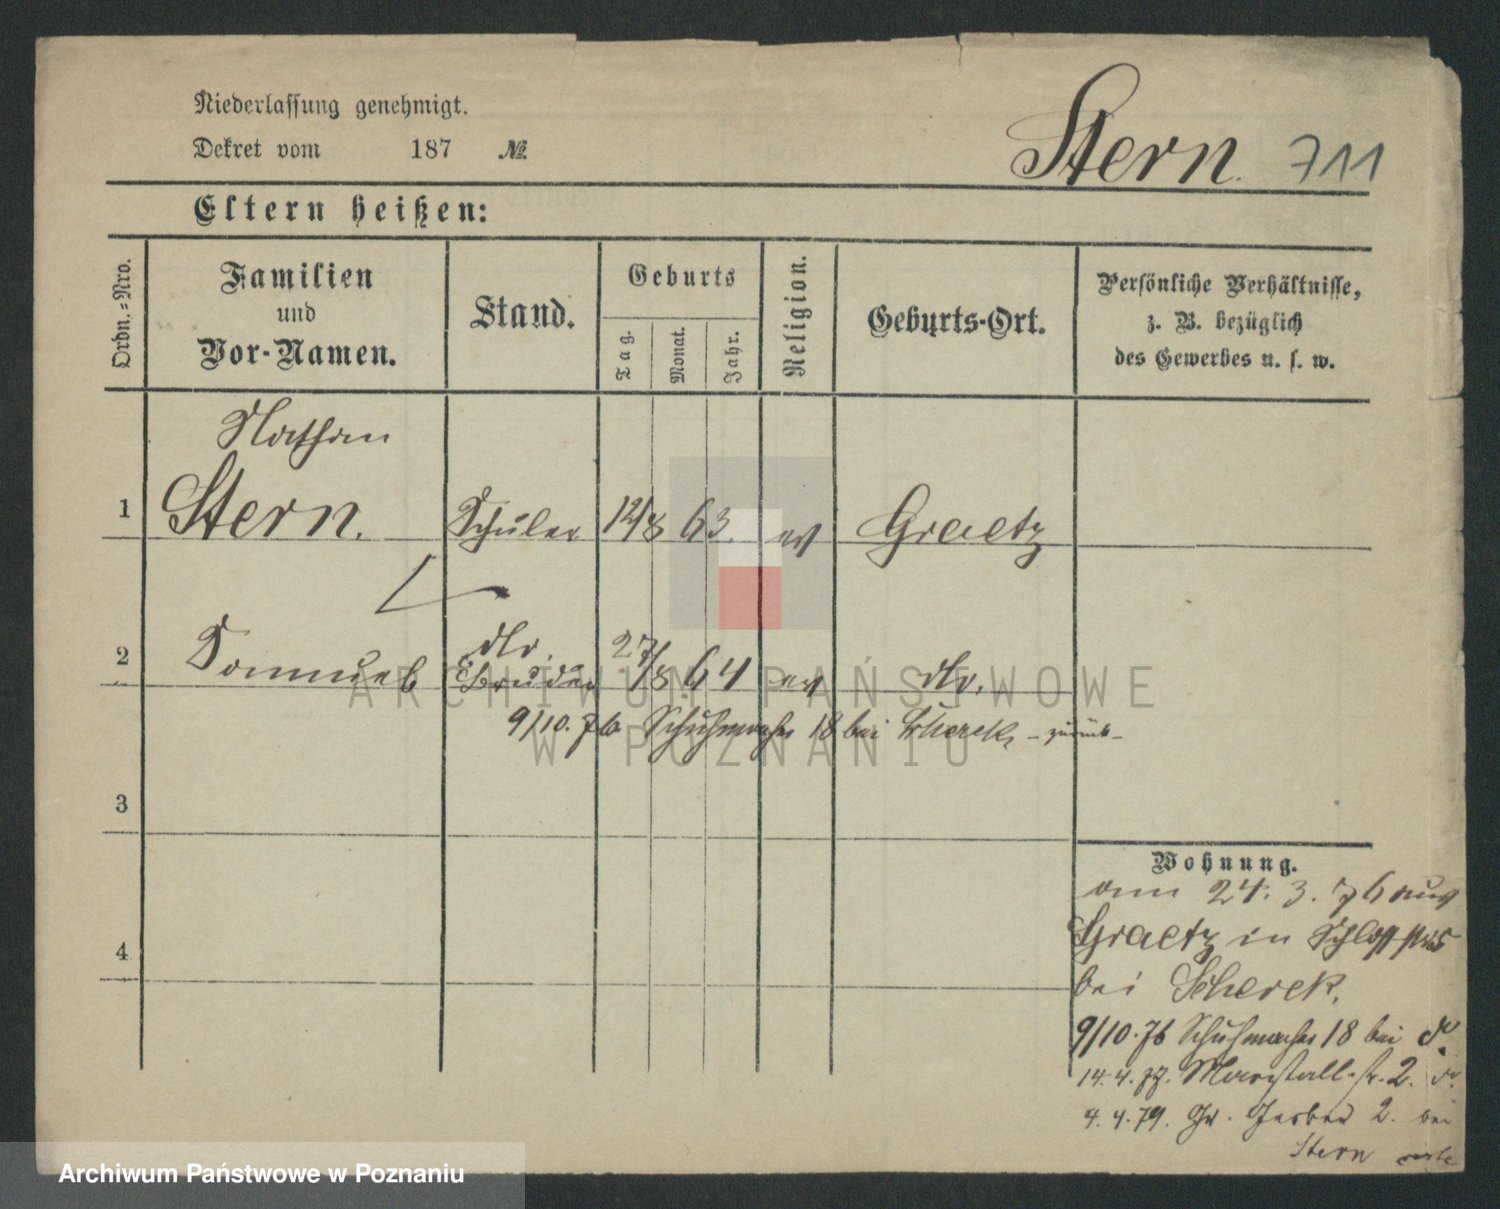 Niederlassung genehmigt.
Dekret vom 187 №
Stern. 711
Eltern heißen:
Ordn.=Nro.
Familien
und
Vor-Namen.
Stand.
Geburts
Tag.
Monat.
Jahr.
Religion.
Geburts-Ort.
Persönliche Verhältnisse,
z. B. bezüglich
des Gewerbes u. s. w.
Nathan
1 Stern. Schüler 12/8 63. Graetz
2 Samuel dto. Bruder 27/8 64 dto.
9/10. 76 Schuhmacher 18 bei Scherek - zurück -
3
4
Wohnung.
am 24. 3. 76 aus
Graetz in Schloss str 5
bei Scherek.
9/10. 76 Schuhmacher 18 bei do
14. 4. 77. Marstall-str. 2. do
4. 4. 79. Gr. Gerber 2. bei
Stern
ARCHIWUM PAŃSTWOWE
W POZNANIU
Archiwum Państwowe w Poznaniu